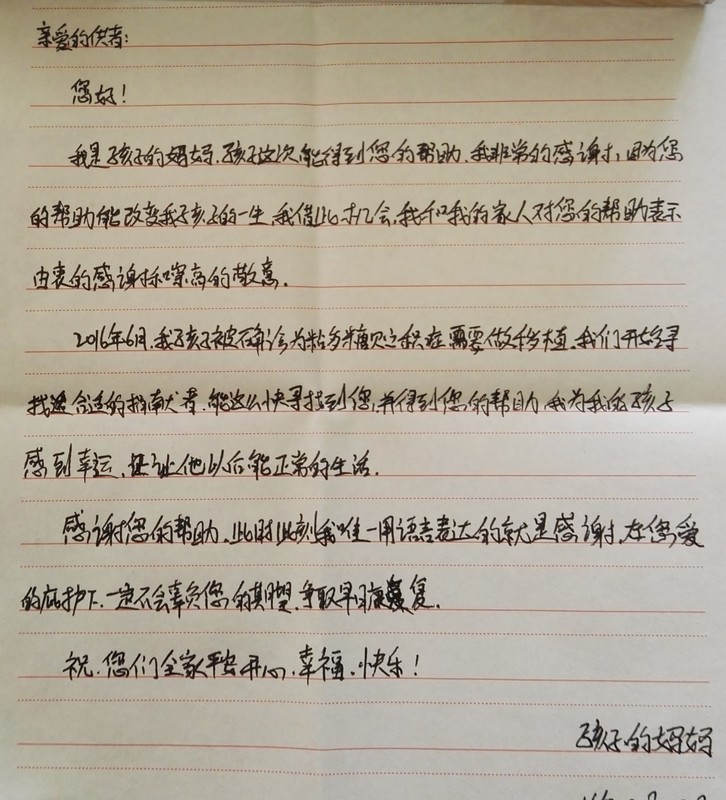 亲爱的供者:
您好!
我是孩子的妈妈.孩子这次能得到您的帮助.我非常的感谢,因为您
的帮助能改变我孩子的一生,我借此机会,我和我的家人对您的帮助表示
由衷的感谢和崇高的敬意.
2016年6月,我孩子被确诊为粘多糖贮积症需要做移植.我们开始寻
找合适的捐献者.能这么快寻找到您,并得到您的帮助,我为我的孩子
感到幸运、让他以后能正常的生活.
感谢您的帮助.此时此刻我唯一用语言表达的就是感谢.在您爱
的庇护下.一定不会辜负您的期望.争取早日康复.
祝.您们全家平安开心.幸福.快乐!
孩子的妈妈